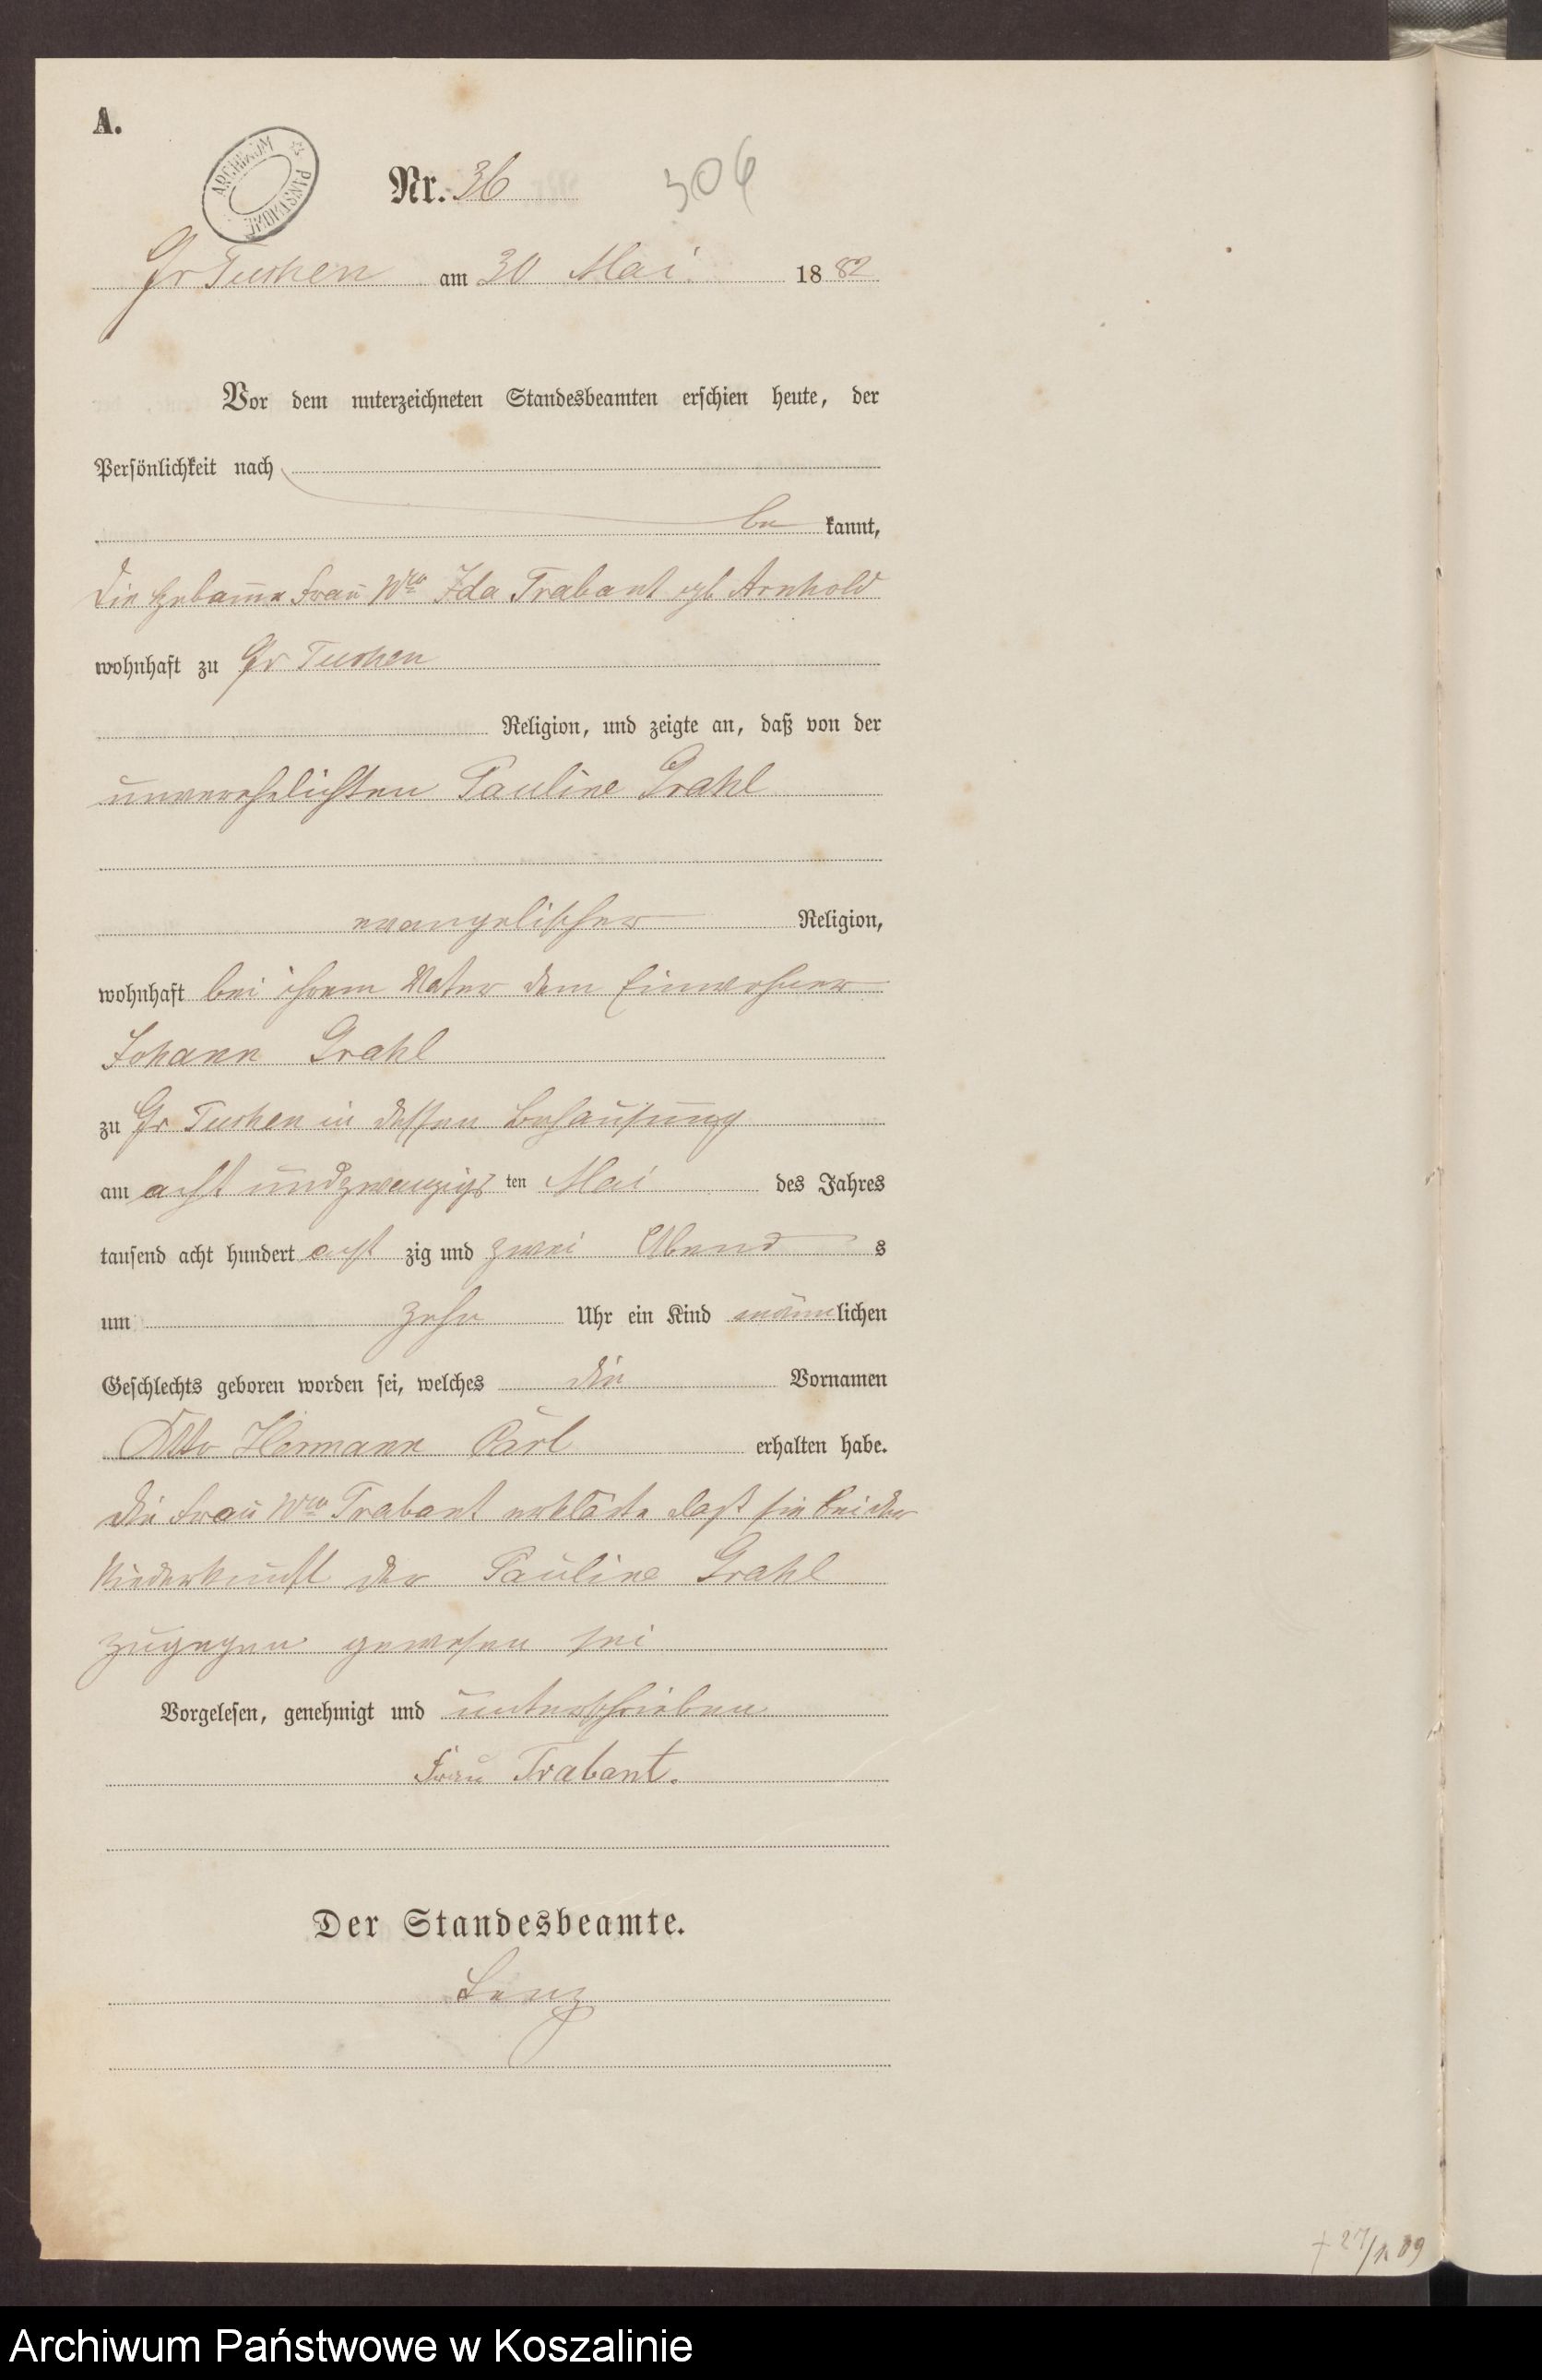 A.
ARCHIWUM PAŃSTWOWE
Nr. 36
306
Gr Tuchen am 30 Mai 1882
Vor dem unterzeichneten Standesbeamten erschien heute, der
Persönlichkeit nach
be kannt,
die Hebamme Frau Wwe Ida Trabant geb Arnhold
wohnhaft zu Gr Tuchen
Religion, und zeigte an, daß von der
unverehelichten Pauline Grahl
evangelischer Religion,
wohnhaft bei ihrem Vater dem Einwohner
Johann Grahl
zu Gr Tuchen in dessen Behausung
am acht und zwanzigs ten Mai des Jahres
tausend acht hundert acht zig und zwei Abend s
um zehn Uhr ein Kind männlichen
Geschlechts geboren worden sei, welches die Vornamen
Otto Hermann Carl erhalten habe.
Die Frau Wwe Trabant erklärte daß sie bei der
Niederkunft der Pauline Grahl
zugegen gewesen sei
Vorgelesen, genehmigt und unterschrieben
Frau Trabant.
Der Standesbeamte.
Lenz
Archiwum Państwowe w Koszalinie